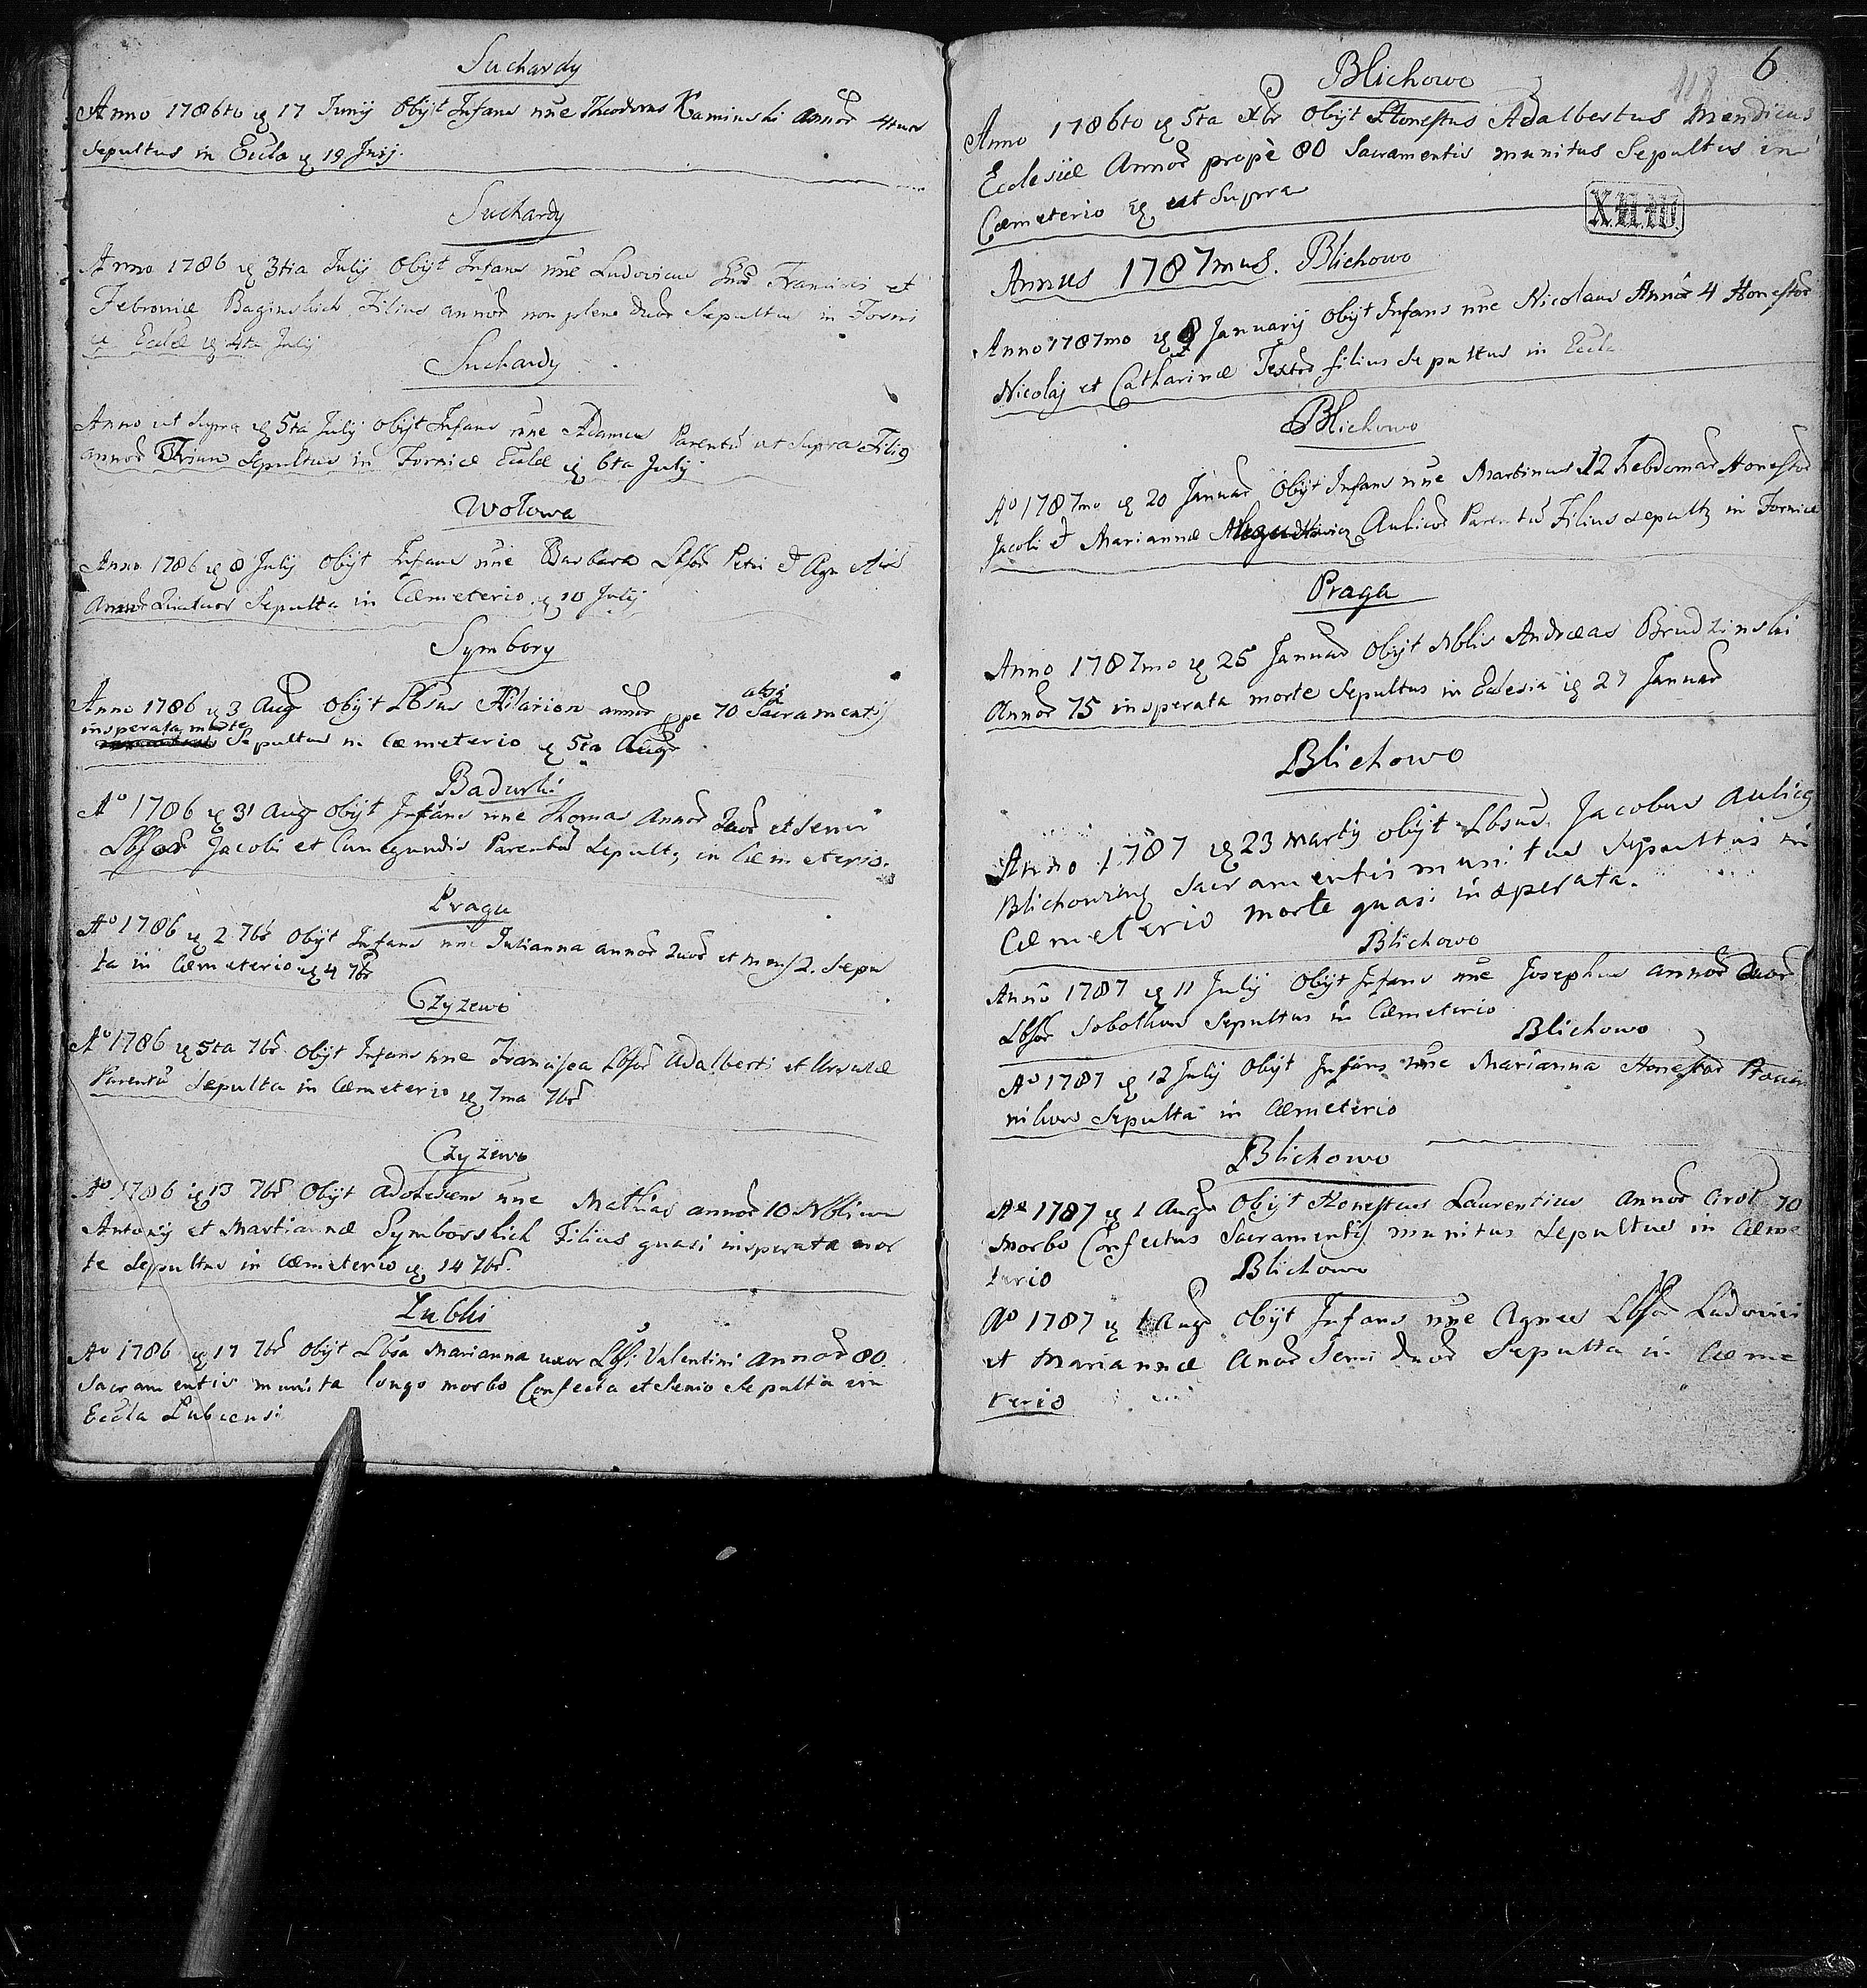 Suchardy
Anno 1786to ꝗ 17 Junij Obijt Infans nne Theodorus Kaminski annoꝝ 4tuor
Sepultus in Eccla ꝗ 19 Junij.
Suchardy
Anno 1786 ꝗ 3tia Julij Obijt Infans nne Ludovicus Francisci et
Febroniæ Baginskich Filius annoꝝ non plene duoꝝ Sepultus in Forni
Ecclæ ꝗ 4ta Julij
Suchardy
Anno ut Supra ꝗ 5ta Julij obijt Infans nne Adamus Parentũ ut Supra Filiꝰ
annoꝝ Trium Sepultus in Fornice Ecclæ ꝗ 6ta Julij
Wolowa
Anno 1786 ꝗ 8 Julij Obijt Infans nne Barbara Lbsoꝝ Petri et
Annoꝝ Quatuor Sepulta in Cæmeterio ꝗ 10 Julij
Symbory
Anno 1786 ꝗ 3 Aug Obijt Lbsus Hilarion annoꝝ ppe 70 absꝗ Sacramentis
insperata morte Sepultus in Cæmeterio ꝗ 5ta Aug
Badurki
Aº 1786 ꝗ 31 Aug Obijt Infans nne Thomas Annoꝝ 2uoꝝ et Semi
Lbsoꝝ Jacobi et Cunegundis Parentũ Sepultꝰ in Cæmeterio.
Praga
Aº 1786 ꝗ 2 7br Obijt Infans nne Julianna annoꝝ 2uoꝝ et mens 2. Sepu
ta in Cæmeterio ꝗ 4 7br
Czyzewo
Aº 1786 ꝗ 5ta 7br Obijt Infans nne Francisca Lbsoꝝ Adalberti et Ursulæ
Parentũ Sepulta in Cæmeterio ꝗ 7ma 7br
Czyzewo
Aº 1786 ꝗ 13 7br Obijt adolescens nne Mathias annoꝝ 10 Nblium
Antonij et Mariannæ Symborskich Filius quasi insperata mor
te Sepultus in Cæmeterio ꝗ 14 7br.
Lubki
Aº 1786 ꝗ 17 7br Obijt Lbsa Marianna uxor Lbsi Valentini annoꝝ 80.
Sacramentis munita longo morbo Confecta et Senio Sepulta in
Eccla Lubcensi
6
118
Blichowo
Anno 1786to ꝗ 5ta Xbr Obijt Honestus Adalbertus Mendicus
Ecclesiæ Annoꝝ propè 80 Sacramentis munitus Sepultus in
Cæmeterio ꝗ ut Supra
Annus 1787mus. Blichowo
Anno 1787mo ꝗ 8 Januarij Obijt Infans nne Nicolaus Annoꝝ 4 Honestoꝝ
Nicolaj et Catharinæ Textoꝝ filius Sepultus in Eccla
Blichowo
Aº 1787mo ꝗ 20 Januar Obijt Infans nne Martinus 12 hebdomaꝝ Honestoꝝ
Jacobi et Mariannæ Aulicoꝝ Parentũ Filius Sepultꝰ in Fornice
Praga
Anno 1787mo ꝗ 25 Januar Obijt Nblis Andræas Brudzinski
Annoꝝ 75 insperata morte Sepultus in Ecclesia ꝗ 27 Januar
Blichowo
Anno 1787 ꝗ 23 Martij obijt Lbsus Jacobus Aulicꝰ
Sacramentis munitus Sepultus in
Cæmeterio morte quasi insperata.
Blichowo
Anno 1787 ꝗ 11 Julij Obijt Infans nne Josephus annoꝝ duoꝝ
Lbsoꝝ Sepultus in Cæmeterio
Blichowo
Aº 1787 ꝗ 12 Julij Obijt Infans nne Marianna Honestoꝝ
Sepulta in Cæmeterio
Blichowo
Aº 1787 ꝗ 1 Aug Obijt Honestus Laurentius annoꝝ circit 70
Morbo Confectus Sacramentis munitus Sepultus in Cæme
terio
Blichowo
Aº 1787 ꝗ 1 Aug Obijt Infans nne Agnes Lbsoꝝ Ludovici
et Mariannæ Annoꝝ Semi duoꝝ Sepulta in Cæme
terio